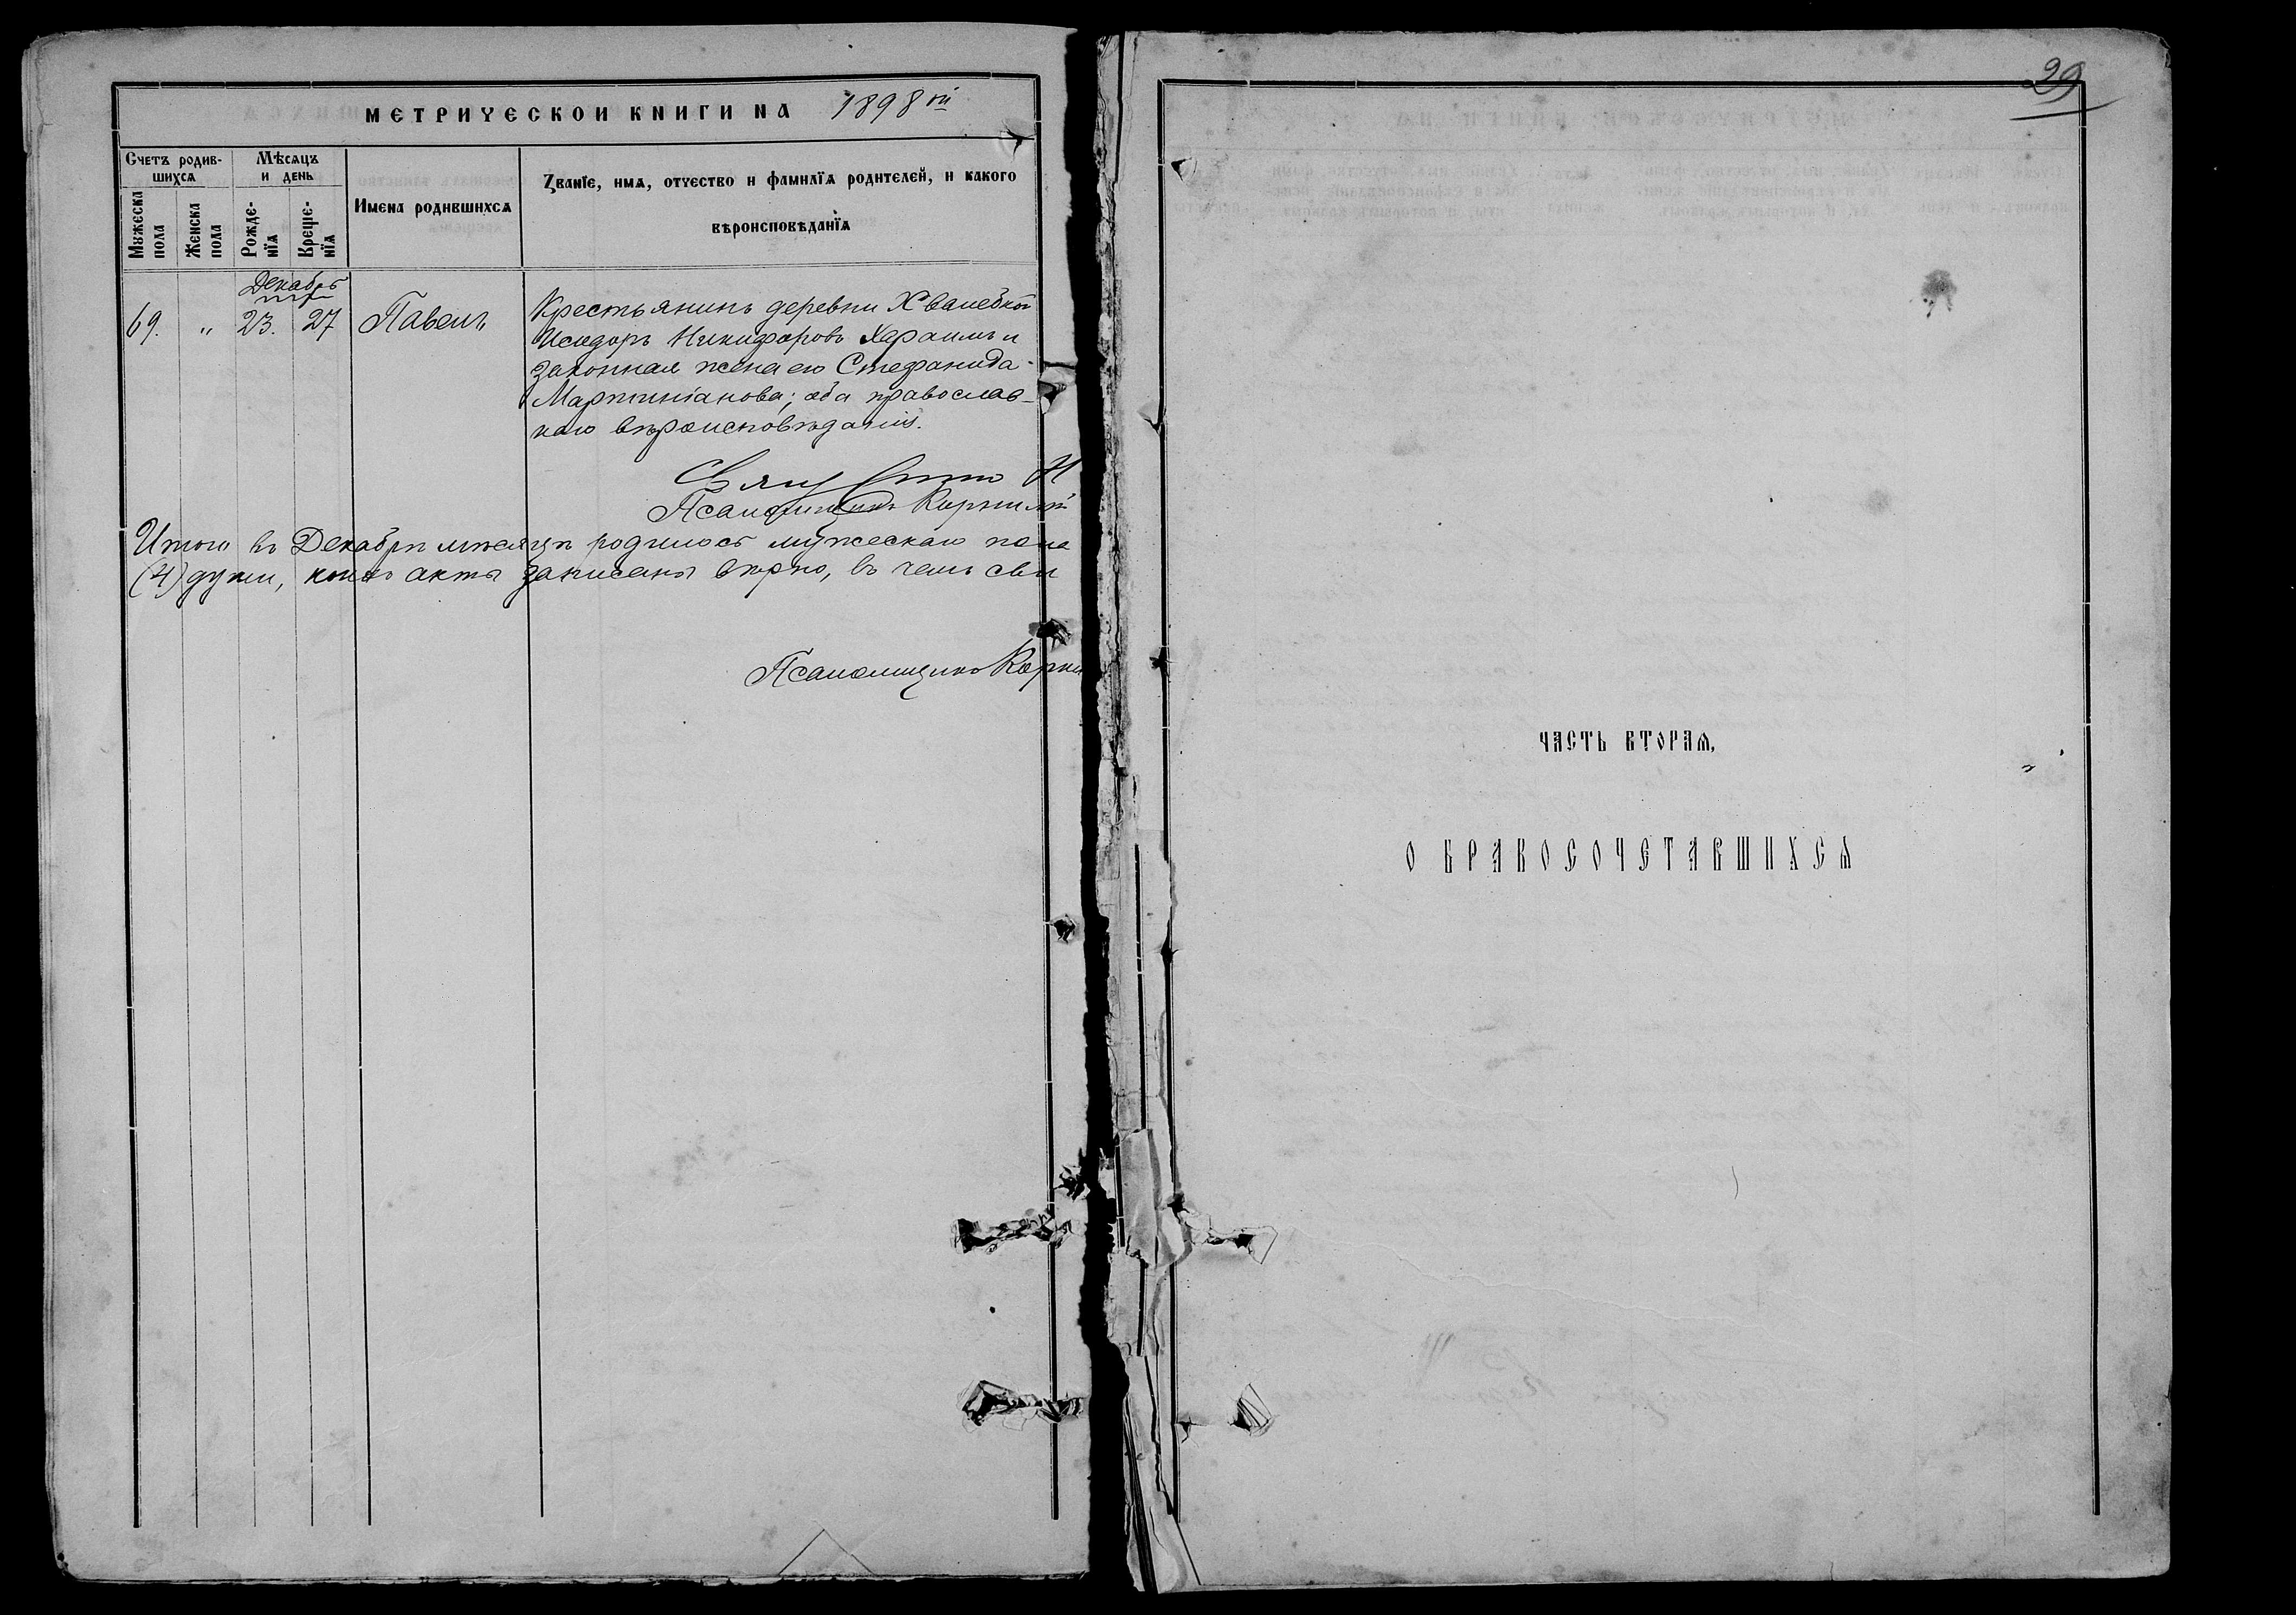 МЕТРИЧЕСКОИ КНИГИ НА 1898 ой
Счетъ родившихсѧ
Мѣсѧцъ и день
Имена родившихсѧ
Званїе, имѧ, отчество и фамилїѧ родителей, и какого
вѣроисповѣданїѧ
Мꙋжеска пола
Женска пола
Рожденїѧ
Крещенїѧ
Декабрь
69. „ 23. 27 Павелъ
Крестьянинъ деревни
Исидоръ Никифоровъ и
законная жена его Стефанида
Мартиніанова; оба православ-
наго вѣроисповѣданія.
Свящ
Псаломщикъ Корнилій
Итого въ Декабрѣ мѣсяцѣ родилось мужескаго пола
(4) души, коихъ акты записаны вѣрно, въ чемъ сви
Псаломщикъ Корни
29
ЧАСТЬ ВТОРАѦ,
О БРАКОСОЧЕТАВШИХСѦ